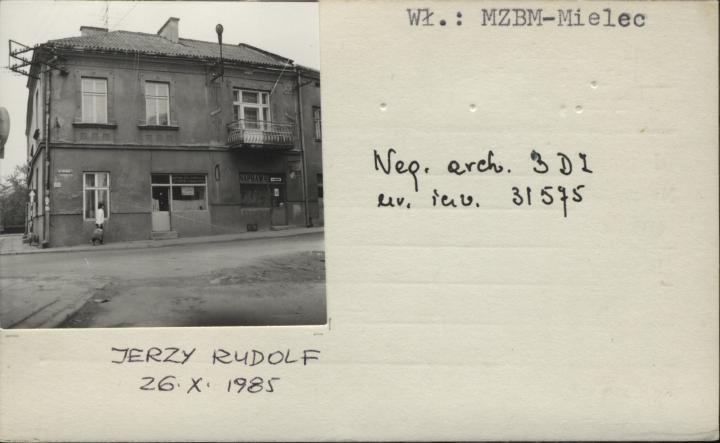 Wł.: MZBM-Mielec
NAPRAWA
Neg. arch. BDZ
nr. inw. 31575
JERZY RUDOLF
26.X.1985